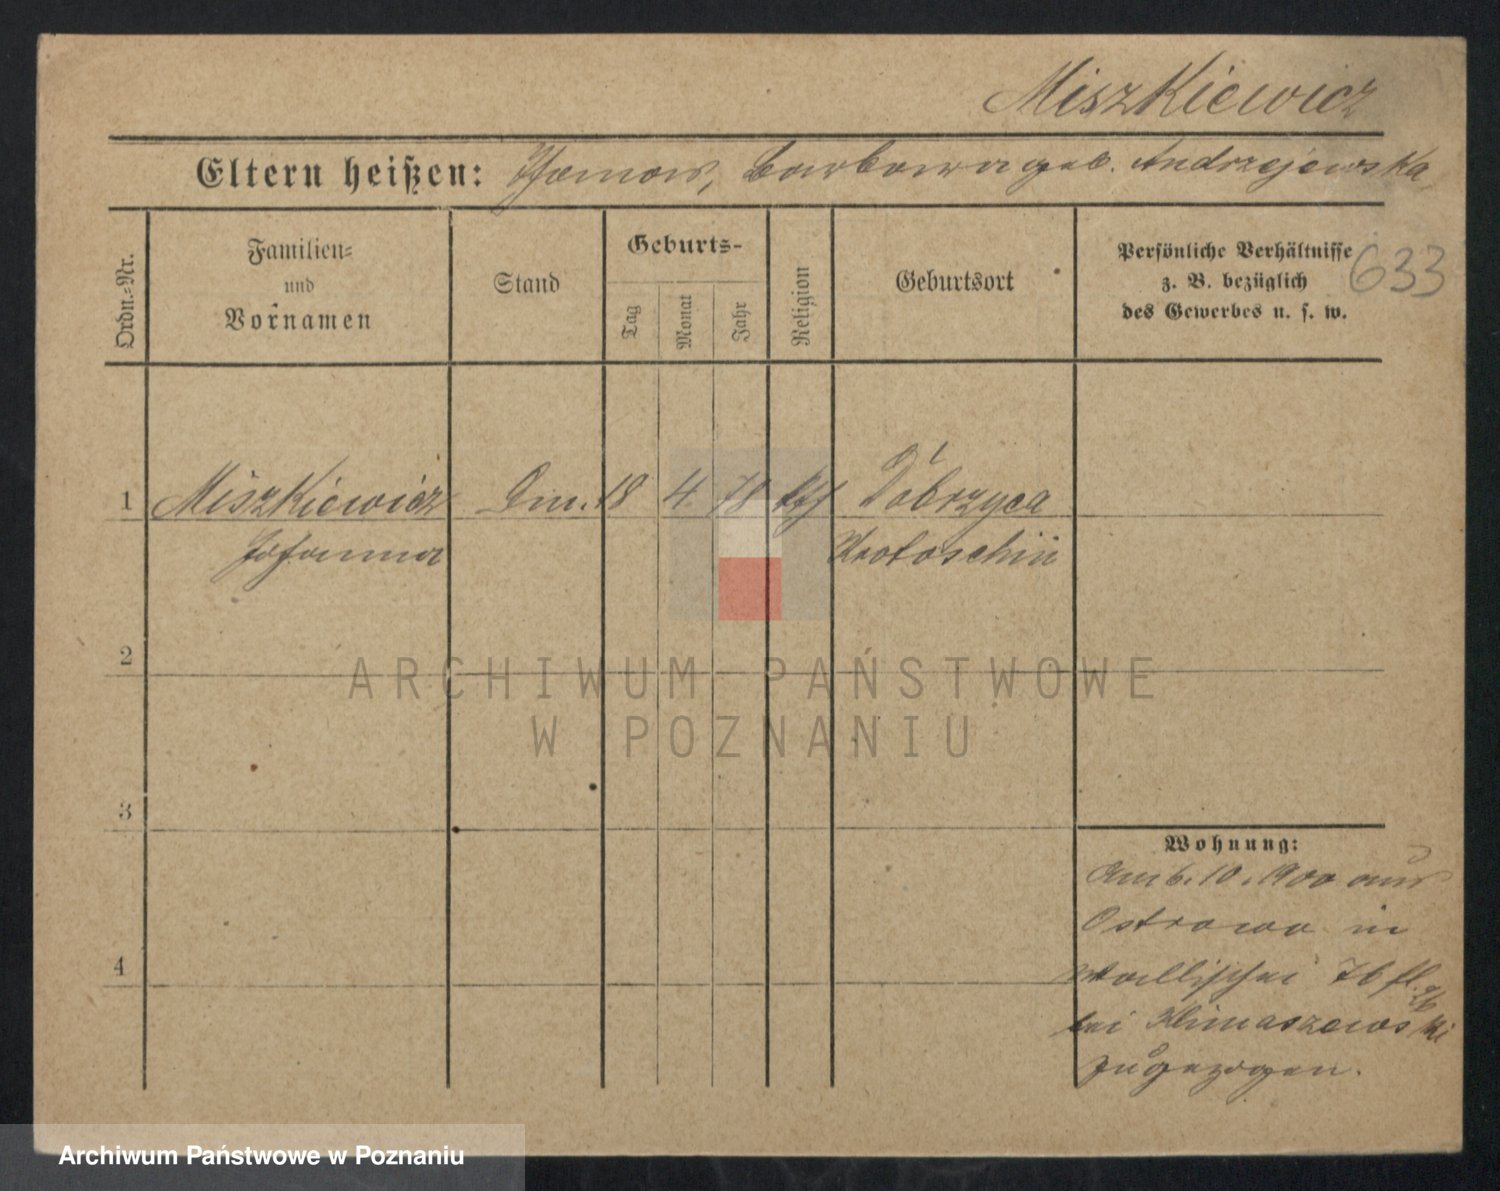 Miszkiewicz
Eltern heißen: Thomas, Barbara geb. Andrzejewska
633
Ordn.-Nr.
Familien- und Vornamen
Stand
Geburts-
Tag
Monat
Jahr
Religion
Geburtsort
Persönliche Verhältnisse
z. B. bezüglich
des Gewerbes u. s. w.
1 Miszkiewicz 18 4. 78 kth Dobrzyca
Johanna Krotoschin
2
3
4
Wohnung:
Am 6. 10. 1900 aus
Ostrowo in
Wallischei 76
bei Klimaszewski
zugezogen.
ARCHIWUM PAŃSTWOWE
W POZNANIU
Archiwum Państwowe w Poznaniu